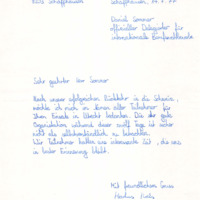 8200 Schaffhausen
Schaffhausen,
Daniel Sommer
offizieller Delegierter für
internationale
Sehr geehrter Herr Sommer
Nach unser erfolgreichen Rückkehr in die Schweiz,
möchte ich mich im Namen aller Teilnehmer für
Ihren Einsatz in Utrecht bedanken. Die gute
Organisation während dieser zwölf Tage ist sicher
nicht als selbstverständlich zu betrachten.
Wir Teilnehmer hatten eine interessante Zeit, die uns
in bester Erinnerung bleibt.
Mit freundlichen Gruss